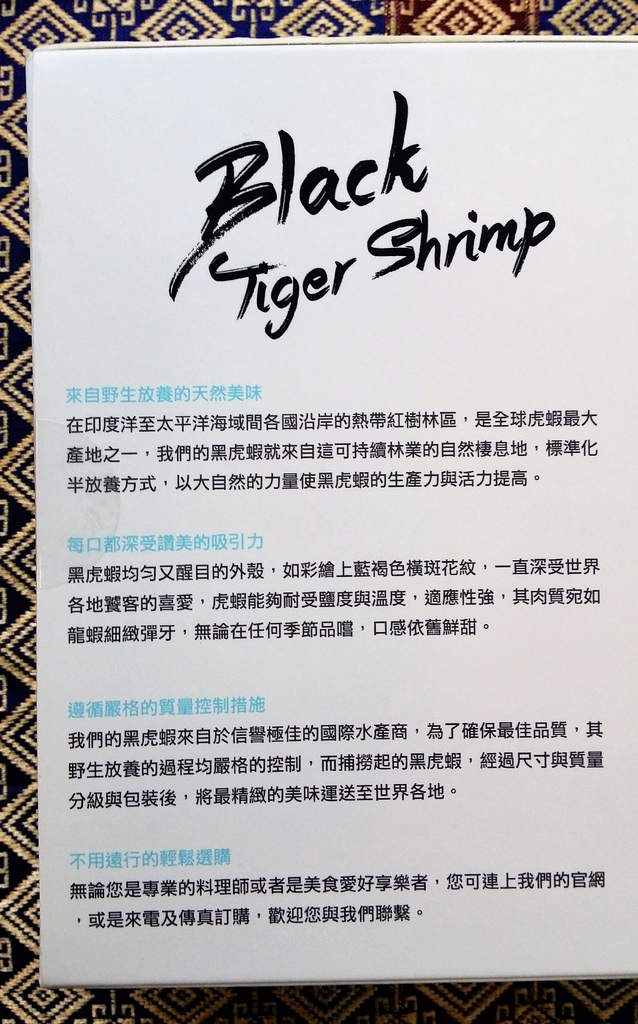 Black
Tiger Shrimp
來自野生放養的天然美味
在印度洋至太平洋海域間各國沿岸的熱帶紅樹林區，是全球虎蝦最大
產地之一，我們的黑虎蝦就來自這可持續林業的自然棲息地，標準化
半放養方式，以大自然的力量使黑虎蝦的生產力與活力提高。
每口都深受讚美的吸引力
黑虎蝦均勻又醒目的外殼，如彩繪上藍褐色橫斑花紋，一直深受世界
各地饕客的喜愛，虎蝦能夠耐受鹽度與溫度，適應性強，其肉質宛如
龍蝦細緻彈牙，無論在任何季節品嚐，口感依舊鮮甜。
遵循嚴格的質量控制措施
我們的黑虎蝦來自於信譽極佳的國際水產商，為了確保最佳品質，其
野生放養的過程均嚴格的控制，而捕撈起的黑虎蝦，經過尺寸與質量
分級與包裝後，將最精緻的美味運送至世界各地。
不用遠行的輕鬆選購
無論您是專業的料理師或者是美食愛好享樂者，您可連上我們的官網
，或是來電及傳真訂購，歡迎您與我們聯繫。